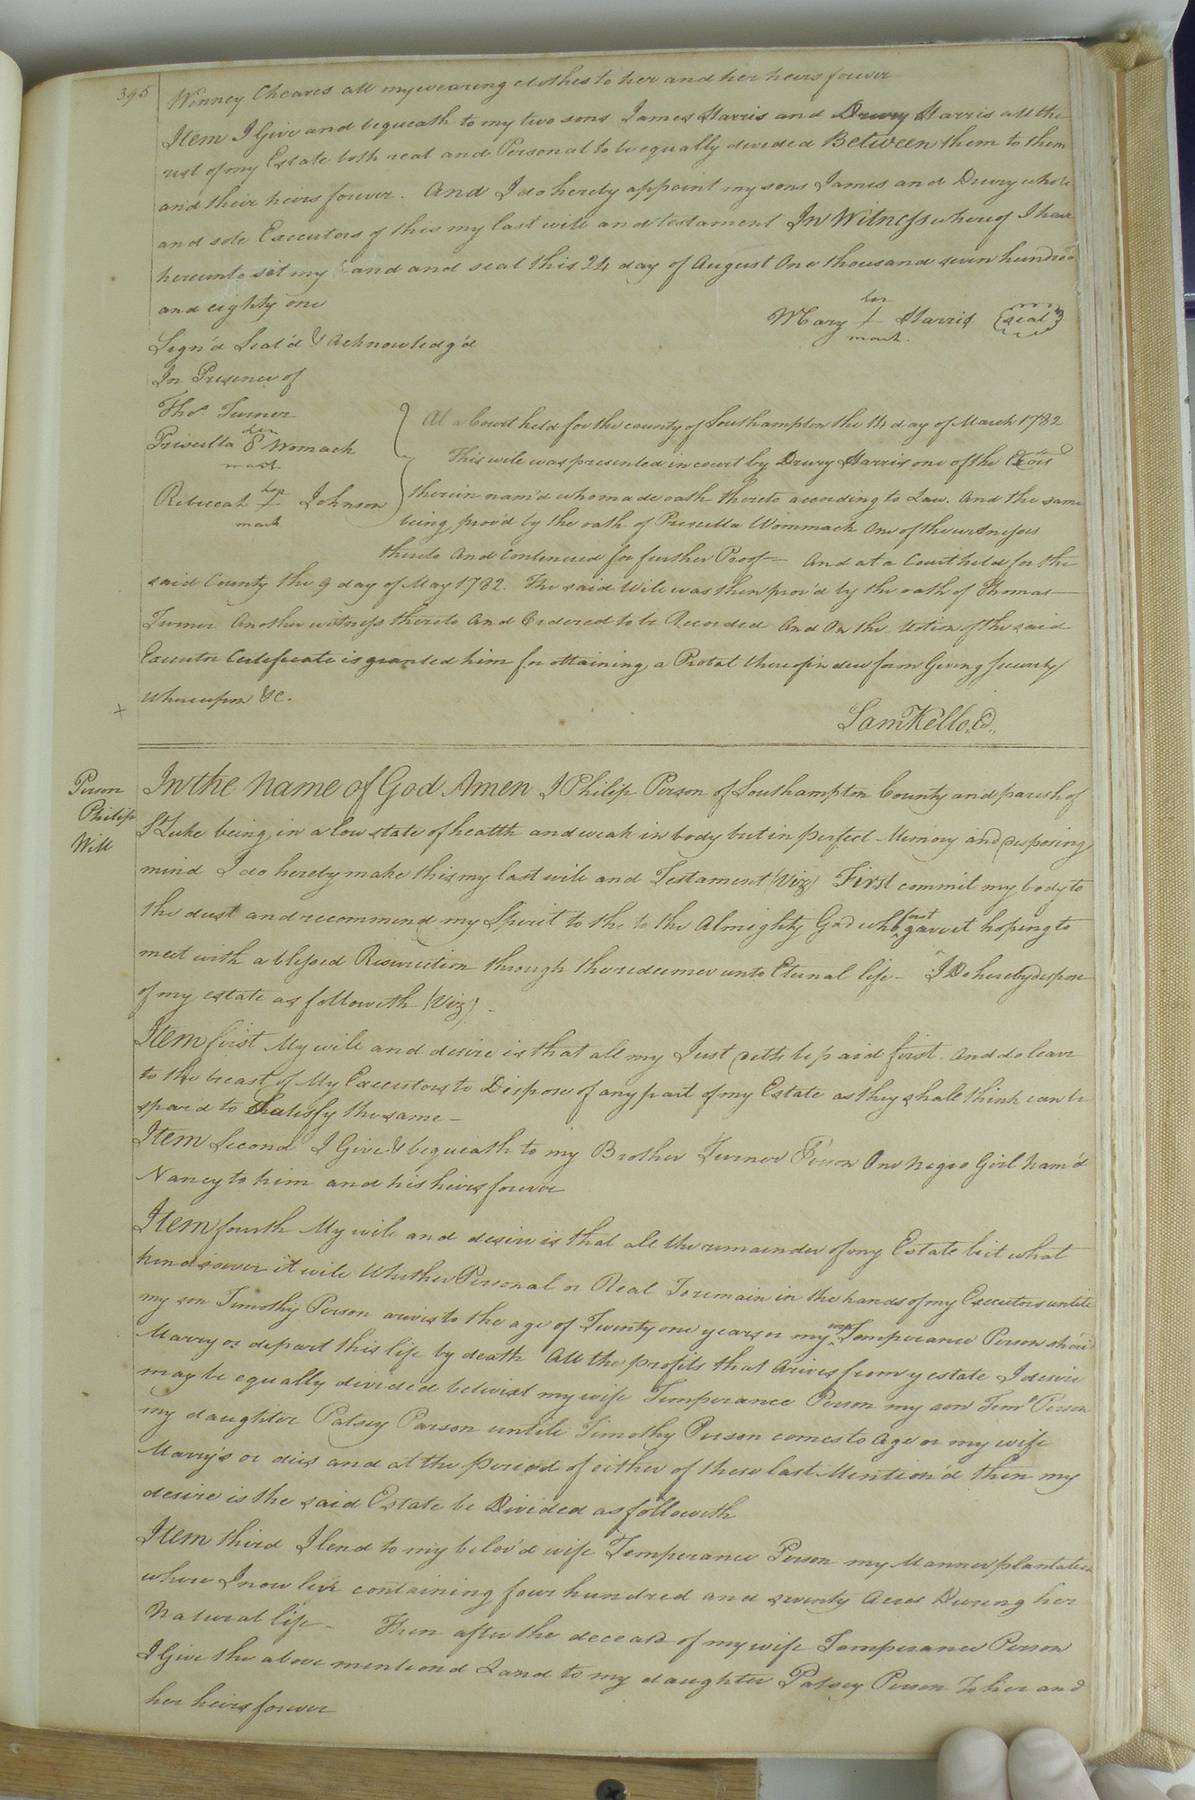 395
Winney Cheaves all my wearing clothes to her and her heirs forever
Item I Give and bequeath to my two sons James Harris and Drury Harris all the
rest of my Estate both real and Personal to be equally divided Between them to them
and their heirs forever. And I do hereby appoint my sons James and Drury whole
and sole Executors of this my last will and testament In Witness whereof I have
hereunto set my hand and seal this 24 day of August One thousand seven hundred
and eighty one
Mary her + mark Harris (seal)
Sign'd Seal'd & Acknowledg'd
In Presence of
Tho.s Turner
Priscilla her 8 mark Womack
Rebeccah her + mark Johnson
At a Court held for the county of Southampton the 14 day of March 1782
This will was presented in court by Drury Harris one of the Exõrs
therein nam'd who made oath thereto according to Law. And the same
being prov'd by the oath of Priscilla Wommack One of the witnesses
thereto And Continued for further Proof - And at a Court held for the
said County the 9 day of May 1782. The said Will was then prov'd by the oath of Thomas
Turner Another witness thereto And Ordered to be Recorded And On the Motion of the said
Executor Certificate is granted him for obtaining a Probat thereof in due form Giving security
Whereupon &C.
Sam Kello, C.
+
Person
Philip
Will
In the Name of God Amen I Philip Person of Southampton County and parish of
St Luke being in a low state of health and weak in body but in perfect Memory and desposing
mind I do hereby make this my last will and Testament (Viz) First commit my body to
the dust and recommend my Spirit to the to the Almighty God who first gave it hoping to
meet with a blessed Resurection through the redeemer unto Eternal life - I Do hereby dispose
of my estate as followeth (Viz) -
Item first My will and desire is that all my Just detts be paid first. And do leave
to the breast of My Executors to Dispose of any part of my Estate as they shall think can be
spar'd to Satisfy the same -
Item Second I Give & bequeath to my Brother Turner Person One Negro Girl Nam'd
Nancy to him and his heirs forever
Item fourth My will and desire is that all the remainder of my Estate bit what
kind soever it will Whether Personal or Real To remain in the hands of my Executors untill
my son Timothy Person arives to the age of Twenty one years or my wife Temperance Person shou'd
Marry or depart this life by death All the profits that Arives from y estate I desire
may be equally divided betwixt my wife Temperance Person my son Tim.o Person
my daughter Patsey Parson untill Timothy Person comes to Age or my wife
Marry's or dies and at the period of either of these last Mention'd then my
desire is the said Estate be Divided as followeth
Item third I lend to my belov'd wife Temperance Person my Manner plantation
where I now live containing four hundred and seventy Acres During her
Natural life - Then after the deceas'd of my wife Temperance Person
I Give the above mentiond Land to my daughter Patsey Person To her and
her heirs forever